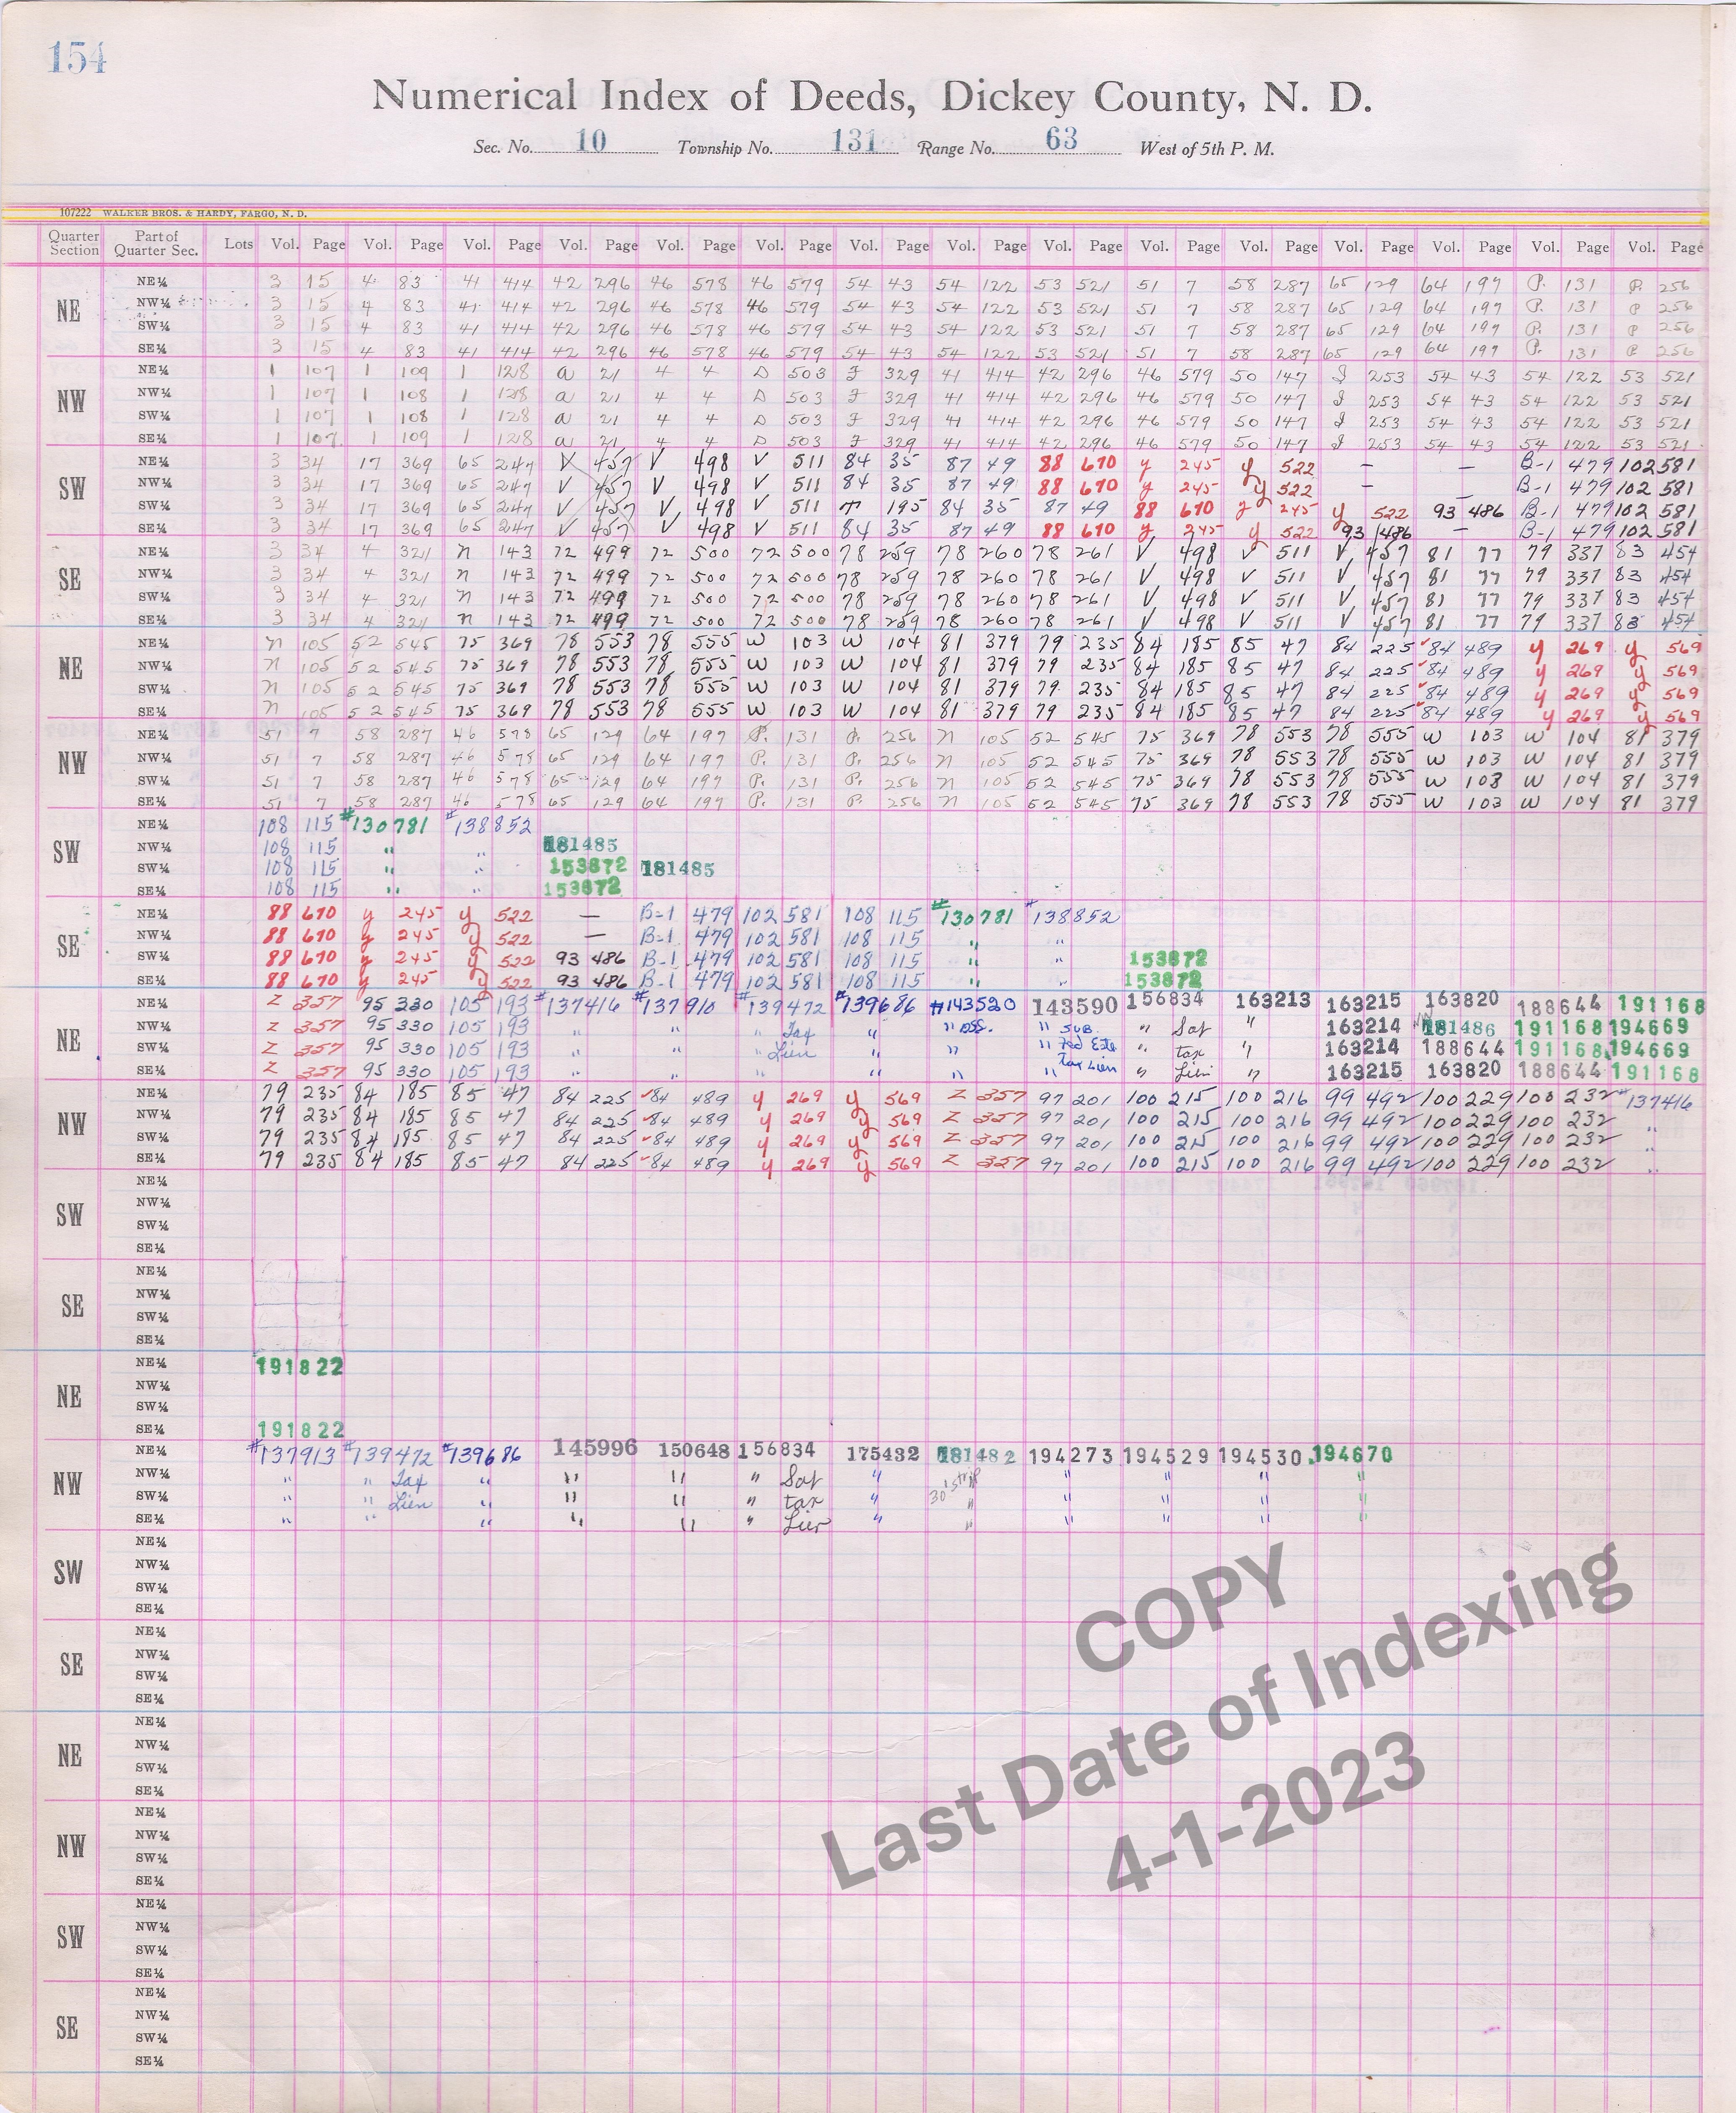 154
Numerical Index of Deeds, Dickey County, N. D.
Sec. No. 10 Township No. 131 Range No. 63 West of 5th P. M.
107222 WALKER BROS. & HARDY, FARGO, N. D.
Quarter Section Part of Quarter Sec. Lots Vol. Page Vol. Page Vol. Page Vol. Page Vol. Page Vol. Page Vol. Page Vol. Page Vol. Page Vol. Page Vol. Page Vol. Page Vol. Page Vol. Page Vol. Page
NE
NE¼ 3 15 4 83 41 414 42 296 46 578 46 579 54 43 54 122 53 521 51 7 58 287 65 129 64 197 P. 131 P. 256
NW¼ 3 15 4 83 41 414 42 296 46 578 46 579 54 43 54 122 53 521 51 7 58 287 65 129 64 197 P. 131 P 256
SW¼ 3 15 4 83 41 414 42 296 46 578 46 579 54 43 54 122 53 521 51 7 58 287 65 129 64 197 P. 131 P 256
SE¼ 3 15 4 83 41 414 42 296 46 578 46 579 54 43 54 122 53 521 51 7 58 287 65 129 64 197 P. 131 P 256
NW
NE¼ 1 107 1 109 1 128 a 21 4 4 D 503 F 329 41 414 42 296 46 579 50 147 253 54 43 54 122 53 521
NW¼ 1 107 1 108 1 128 a 21 4 4 D 503 F 329 41 414 42 296 46 579 50 147 253 54 43 54 122 53 521
SW¼ 1 107 1 108 1 128 a 21 4 4 D 503 F 329 41 414 42 296 46 579 50 147 253 54 43 54 122 53 521
SE¼ 1 107 1 109 1 128 a 21 4 4 D 503 F 329 41 414 42 296 46 579 50 147 253 54 43 54 122 53 521
SW
NE¼ 3 34 17 369 65 247 V 457 V 498 V 511 84 35 87 49 88 670 y 245 y 522 — — B-1 479 102 581
NW¼ 3 34 17 369 65 247 V 457 V 498 V 511 84 35 87 49 88 670 y 245 y 522 — — B-1 479 102 581
SW¼ 3 34 17 369 65 247 V 457 V 498 V 511 T 195 84 35 87 49 88 670 y 245 y 522 93 486 B-1 479 102 581
SE¼ 3 34 17 369 65 247 V 457 V 498 V 511 84 35 87 49 88 670 y 245 y 522 93 486 — B-1 479 102 581
SE
NE¼ 3 34 4 321 n 143 72 499 72 500 72 500 78 259 78 260 78 261 V 498 V 511 V 457 81 77 79 337 83 454
NW¼ 3 34 4 321 n 143 72 499 72 500 72 500 78 259 78 260 78 261 V 498 V 511 V 457 81 77 79 337 83 454
SW¼ 3 34 4 321 n 143 72 499 72 500 72 500 78 259 78 260 78 261 V 498 V 511 V 457 81 77 79 337 83 454
SE¼ 3 34 4 321 n 143 72 499 72 500 72 500 78 259 78 260 78 261 V 498 V 511 V 457 81 77 79 337 83 454
NE
NE¼ n 105 52 545 75 369 78 553 78 555 W 103 W 104 81 379 79 235 84 185 85 47 84 225 84 489 y 269 y 569
NW¼ n 105 52 545 75 369 78 553 78 555 W 103 W 104 81 379 79 235 84 185 85 47 84 225 84 489 y 269 y 569
SW¼ n 105 52 545 75 369 78 553 78 555 W 103 W 104 81 379 79 235 84 185 85 47 84 225 84 489 y 269 y 569
SE¼ n 105 52 545 75 369 78 553 78 555 W 103 W 104 81 379 79 235 84 185 85 47 84 225 84 489 y 269 y 569
NW
NE¼ 51 7 58 287 46 578 65 129 64 197 P. 131 P. 256 n 105 52 545 75 369 78 553 78 555 W 103 W 104 81 379
NW¼ 51 7 58 287 46 578 65 129 64 197 P. 131 P. 256 n 105 52 545 75 369 78 553 78 555 W 103 W 104 81 379
SW¼ 51 7 58 287 46 578 65 129 64 197 P. 131 P. 256 n 105 52 545 75 369 78 553 78 555 W 103 W 104 81 379
SE¼ 51 7 58 287 46 578 65 129 64 197 P. 131 P. 256 n 105 52 545 75 369 78 553 78 555 W 103 W 104 81 379
SW
NE¼ 108 115 #130781 #138852
NW¼ 108 115 " " 181485
SW¼ 108 115 " " 153872 181485
SE¼ 108 115 " " 153872
SE
NE¼ 88 670 y 245 y 522 — B-1 479 102 581 108 115 #130781 #138852
NW¼ 88 670 y 245 y 522 — B-1 479 102 581 108 115 " "
SW¼ 88 670 y 245 y 522 93 486 B-1 479 102 581 108 115 " " 153872
SE¼ 88 670 y 245 y 522 93 486 B-1 479 102 581 108 115 " " 153872
NE
NE¼ Z 357 95 330 105 193 #137416 #137910 #139472 #139686 #143520 143590 156834 163213 163215 163820 188644 191168
NW¼ Z 357 95 330 105 193 " " " Tax " " ass. " sub. " Sat " 163214 181486 191168 194669
SW¼ Z 357 95 330 105 193 " " " Lien " " " Fed Este " tax " 163214 188644 191168 194669
SE¼ Z 357 95 330 105 193 " " " " " " Tax Lien " Lien " 163215 163820 188644 191168
NW
NE¼ 79 235 84 185 85 47 84 225 84 489 y 269 y 569 Z 357 97 201 100 215 100 216 99 492 100 229 100 232 #137416
NW¼ 79 235 84 185 85 47 84 225 84 489 y 269 y 569 Z 357 97 201 100 215 100 216 99 492 100 229 100 232 "
SW¼ 79 235 84 185 85 47 84 225 84 489 y 269 y 569 Z 357 97 201 100 215 100 216 99 492 100 229 100 232 "
SE¼ 79 235 84 185 85 47 84 225 84 489 y 269 y 569 Z 357 97 201 100 215 100 216 99 492 100 229 100 232 "
SW
NE¼
NW¼
SW¼
SE¼
SE
NE¼
NW¼
SW¼
SE¼
NE
NE¼ 191822
NW¼
SW¼
SE¼ 191822
NW
NE¼ #137913 #139472 #139686 145996 150648 156834 175432 181482 194273 194529 194530 194670
NW¼ " " Tax " " " " Sat " 30' strip " " " "
SW¼ " " Lien " " " " tax " " " " " "
SE¼ " " " " " " Lien " " " " " "
SW
NE¼
NW¼
SW¼
SE¼
SE
NE¼
NW¼
SW¼
SE¼
NE
NE¼
NW¼
SW¼
SE¼
NW
NE¼
NW¼
SW¼
SE¼
SW
NE¼
NW¼
SW¼
SE¼
SE
NE¼
NW¼
SW¼
SE¼
COPY
Last Date of Indexing
4-1-2023